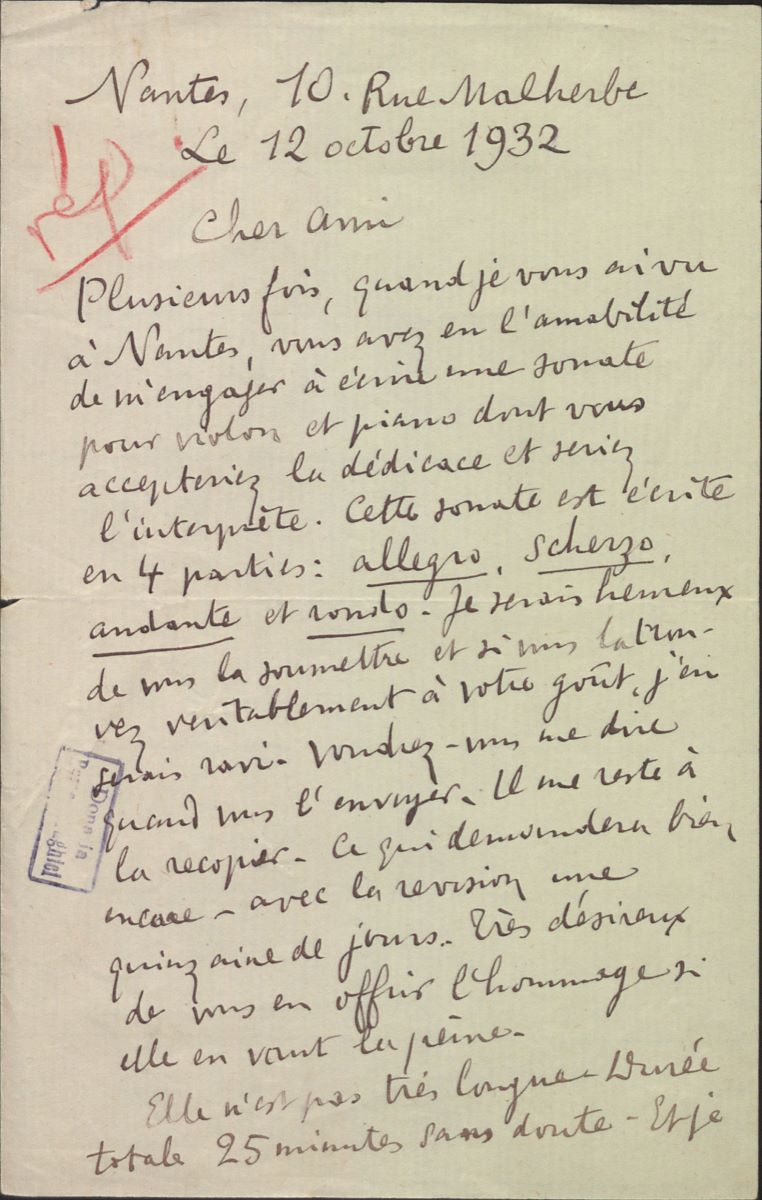 Nantes, 10. Rue Malherbe
Le 12 octobre 1932
rép
Cher ami
Plusieurs fois, quand je vous ai vu
à Nantes, vous avez eu l'amabilité
de m'engager à écrire une sonate
pour violon et piano dont vous
accepteriez la dédicace et seriez
l'interprète. Cette sonate est écrite
en 4 parties: allegro, scherzo,
andante et rondo - Je serais heureux
de vous la soumettre et si vous la trou-
vez véritablement à votre goût, j'en
serais ravi - Voudrez-vous me dire
quand vous l'envoyer - Il me reste à
la recopier - Ce qui demandera bien
encore - avec la revision une
quinzaine de jours. Très désireux
de vous en offrir l'hommage si
elle en vaut la peine -
Elle n'est pas très longue - Durée
totale 25 minutes sans doute - Et je